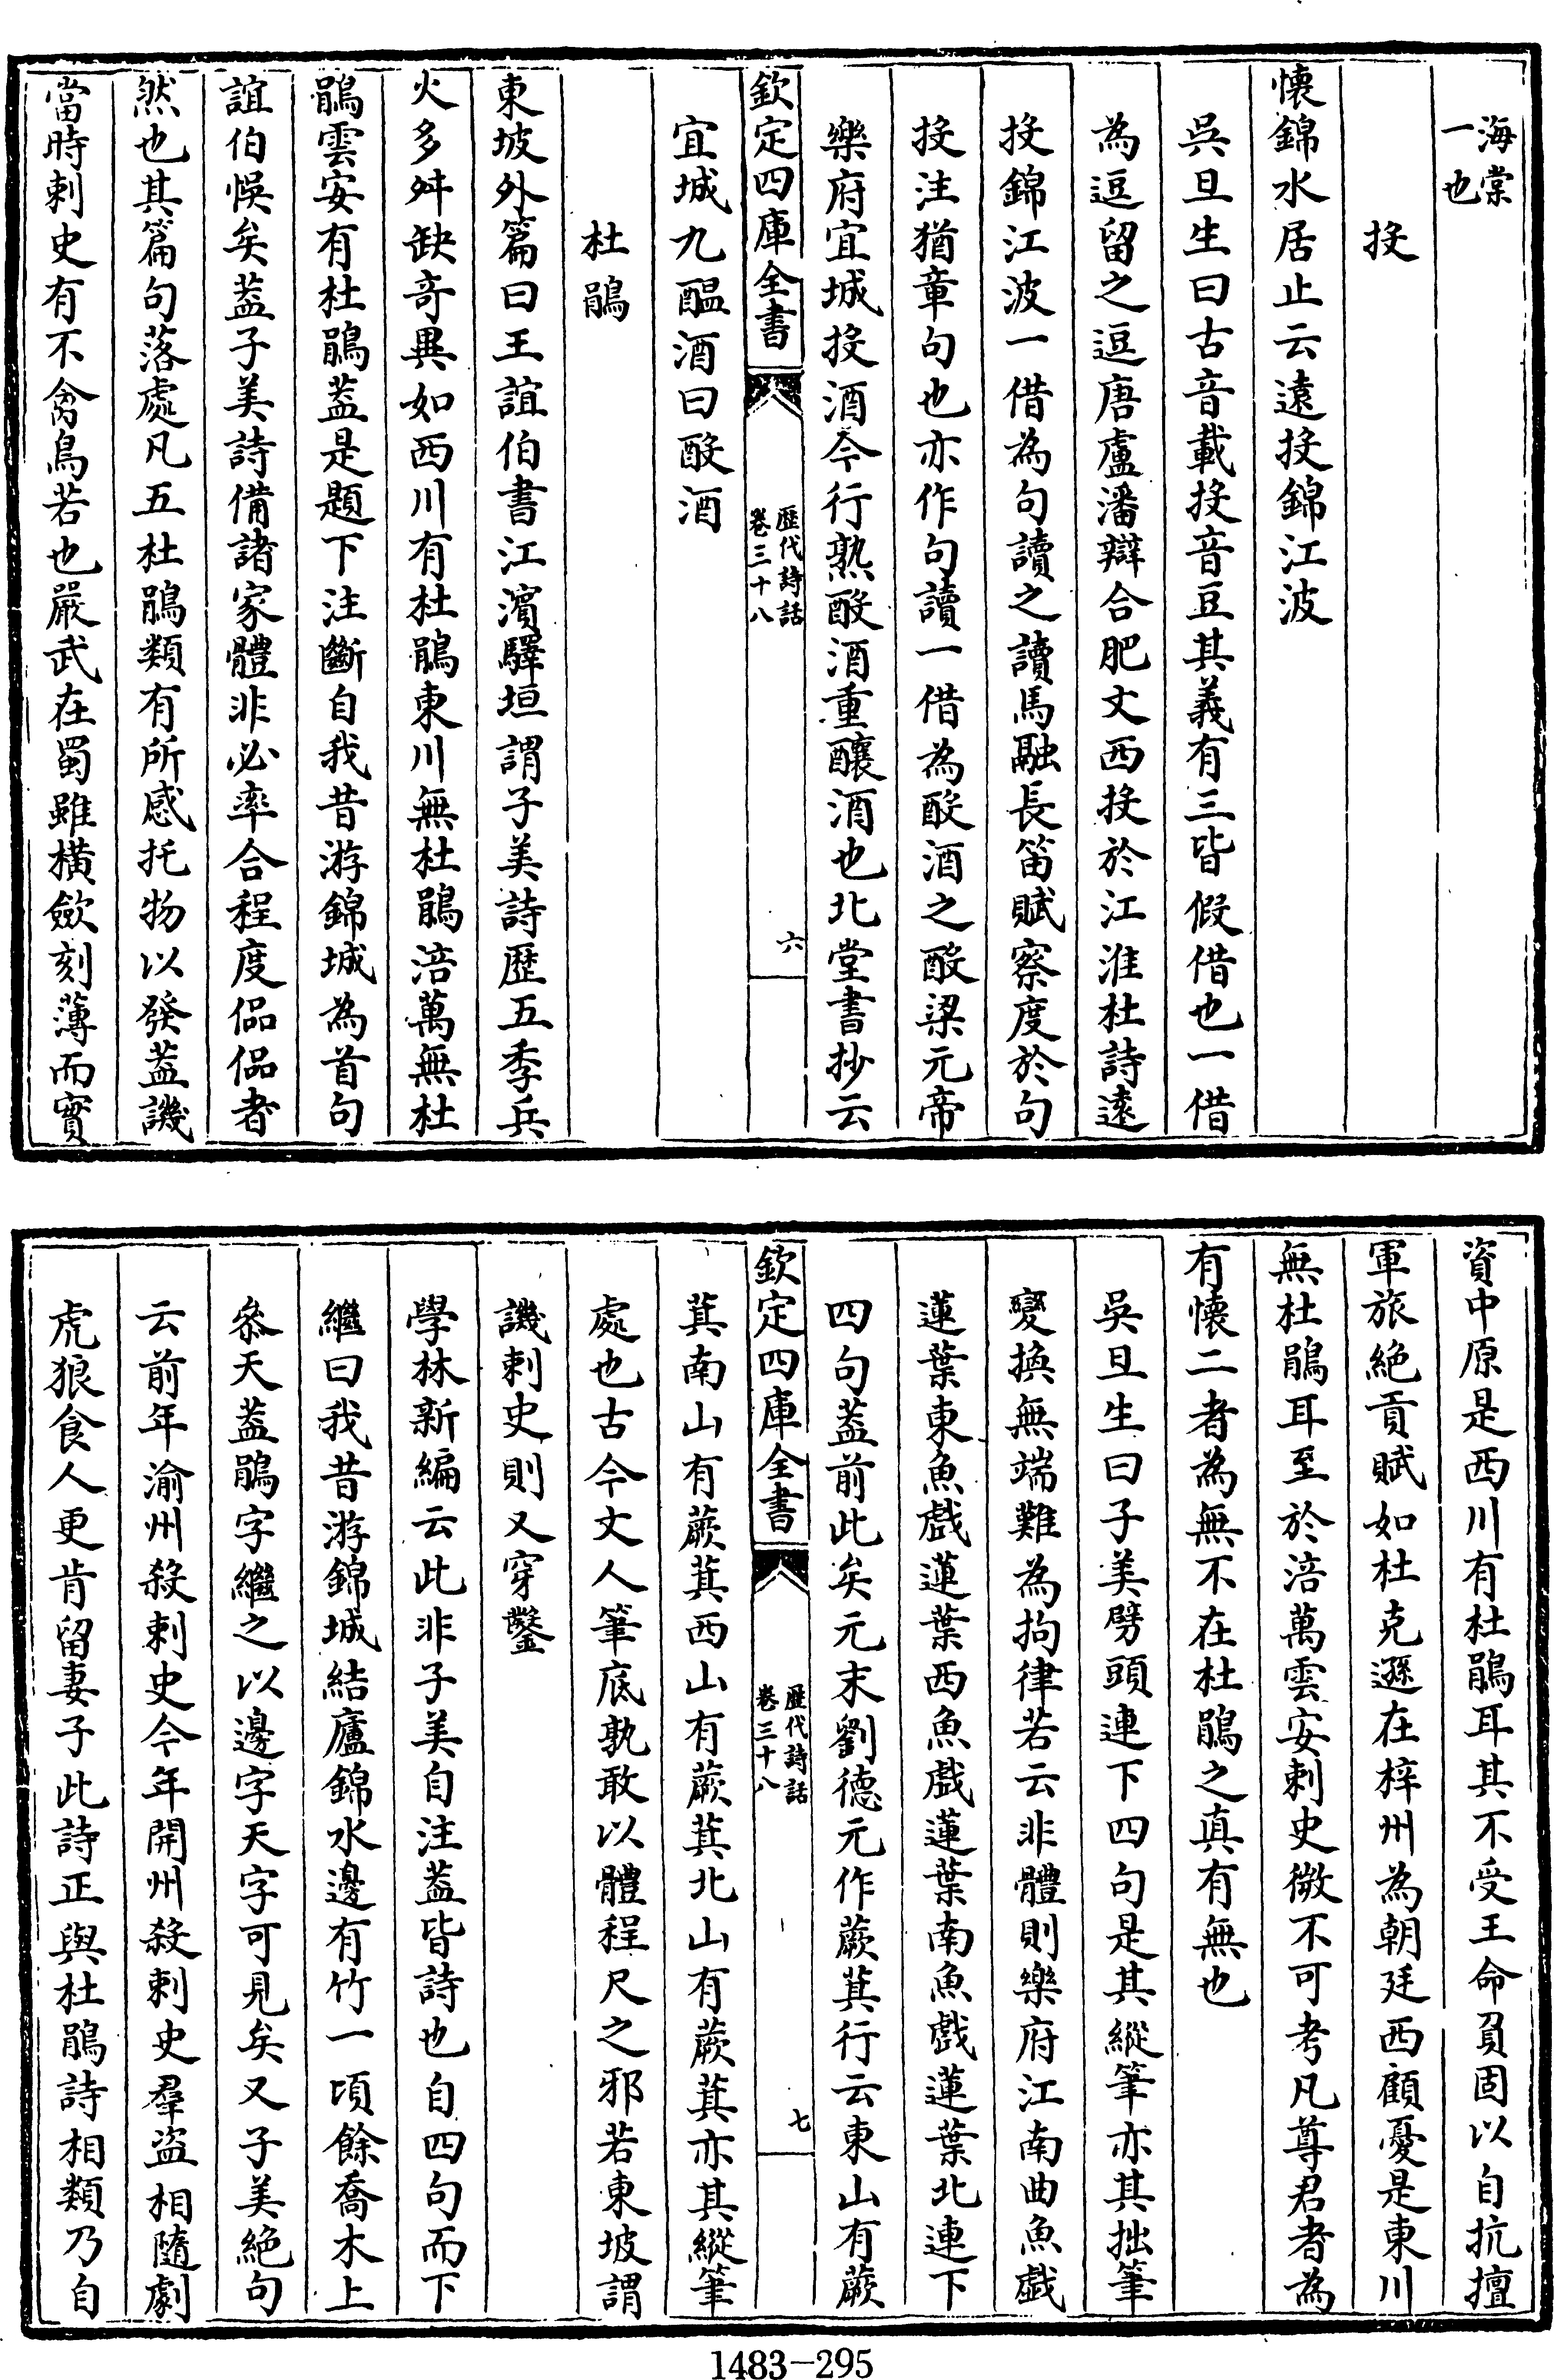 海棠
一也
投
懷錦水居止云遠投錦江波
吳旦生曰古音載投音豆其義有三皆假借也一借
為逗留之逗唐盧潘辯合肥丈西投於江淮杜詩遠
投錦江波一借為句讀之讀馬融長笛賦察度於句
投注猶章句也亦作句讀一借為酘酒之酘梁元帝
樂府宜城投酒今行熟酘酒重釀酒也北堂書抄云
欽定四庫全書
歷代詩話
卷三十八
六
宜城九醖酒曰酘酒
杜鵑
東坡外篇曰王誼伯書江濱驛垣謂子美詩歷五季兵
火多舛缺奇異如西川有杜鵑東川無杜鵑涪萬無杜
鵑雲安有杜鵑蓋是題下注斷自我昔游錦城為首句
誼伯悞矣蓋子美詩備諸家體非必率合程度偘偘者
然也其篇句落處凡五杜鵑類有所感托物以發蓋譏
當時刺史有不禽鳥若也嚴武在蜀雖橫歛刻薄而實
資中原是西川有杜鵑耳其不受王命負固以自抗擅
軍旅絶貢賦如杜克遜在梓州為朝廷西顧憂是東川
無杜鵑耳至於涪萬雲安刺史微不可考凡尊君者為
有懷二者為無不在杜鵑之真有無也
吳旦生曰子美劈頭連下四句是其縱筆亦其拙筆
變換無端難為拘律若云非體則樂府江南曲魚戲
蓮葉東魚戲蓮葉西魚戲蓮葉南魚戲蓮葉北連下
四句蓋前此矣元末劉德元作蕨萁行云東山有蕨
萁南山有蕨萁西山有蕨萁北山有蕨萁亦其縱筆
欽定四庫全書
歷代詩話
卷三十八
七
處也古今文人筆底孰敢以體程尺之邪若東坡謂
譏刺史則又穿鑿
學林新編云此非子美自注蓋皆詩也自四句而下
繼曰我昔游錦城結廬錦水邊有竹一頃餘喬木上
叅天蓋鵑字繼之以邊字天字可見矣又子美絶句
云前年渝州殺刺史今年開州殺刺史羣盜相隨劇
虎狼食人更肯留妻子此詩正與杜鵑詩相類乃自
1483-295